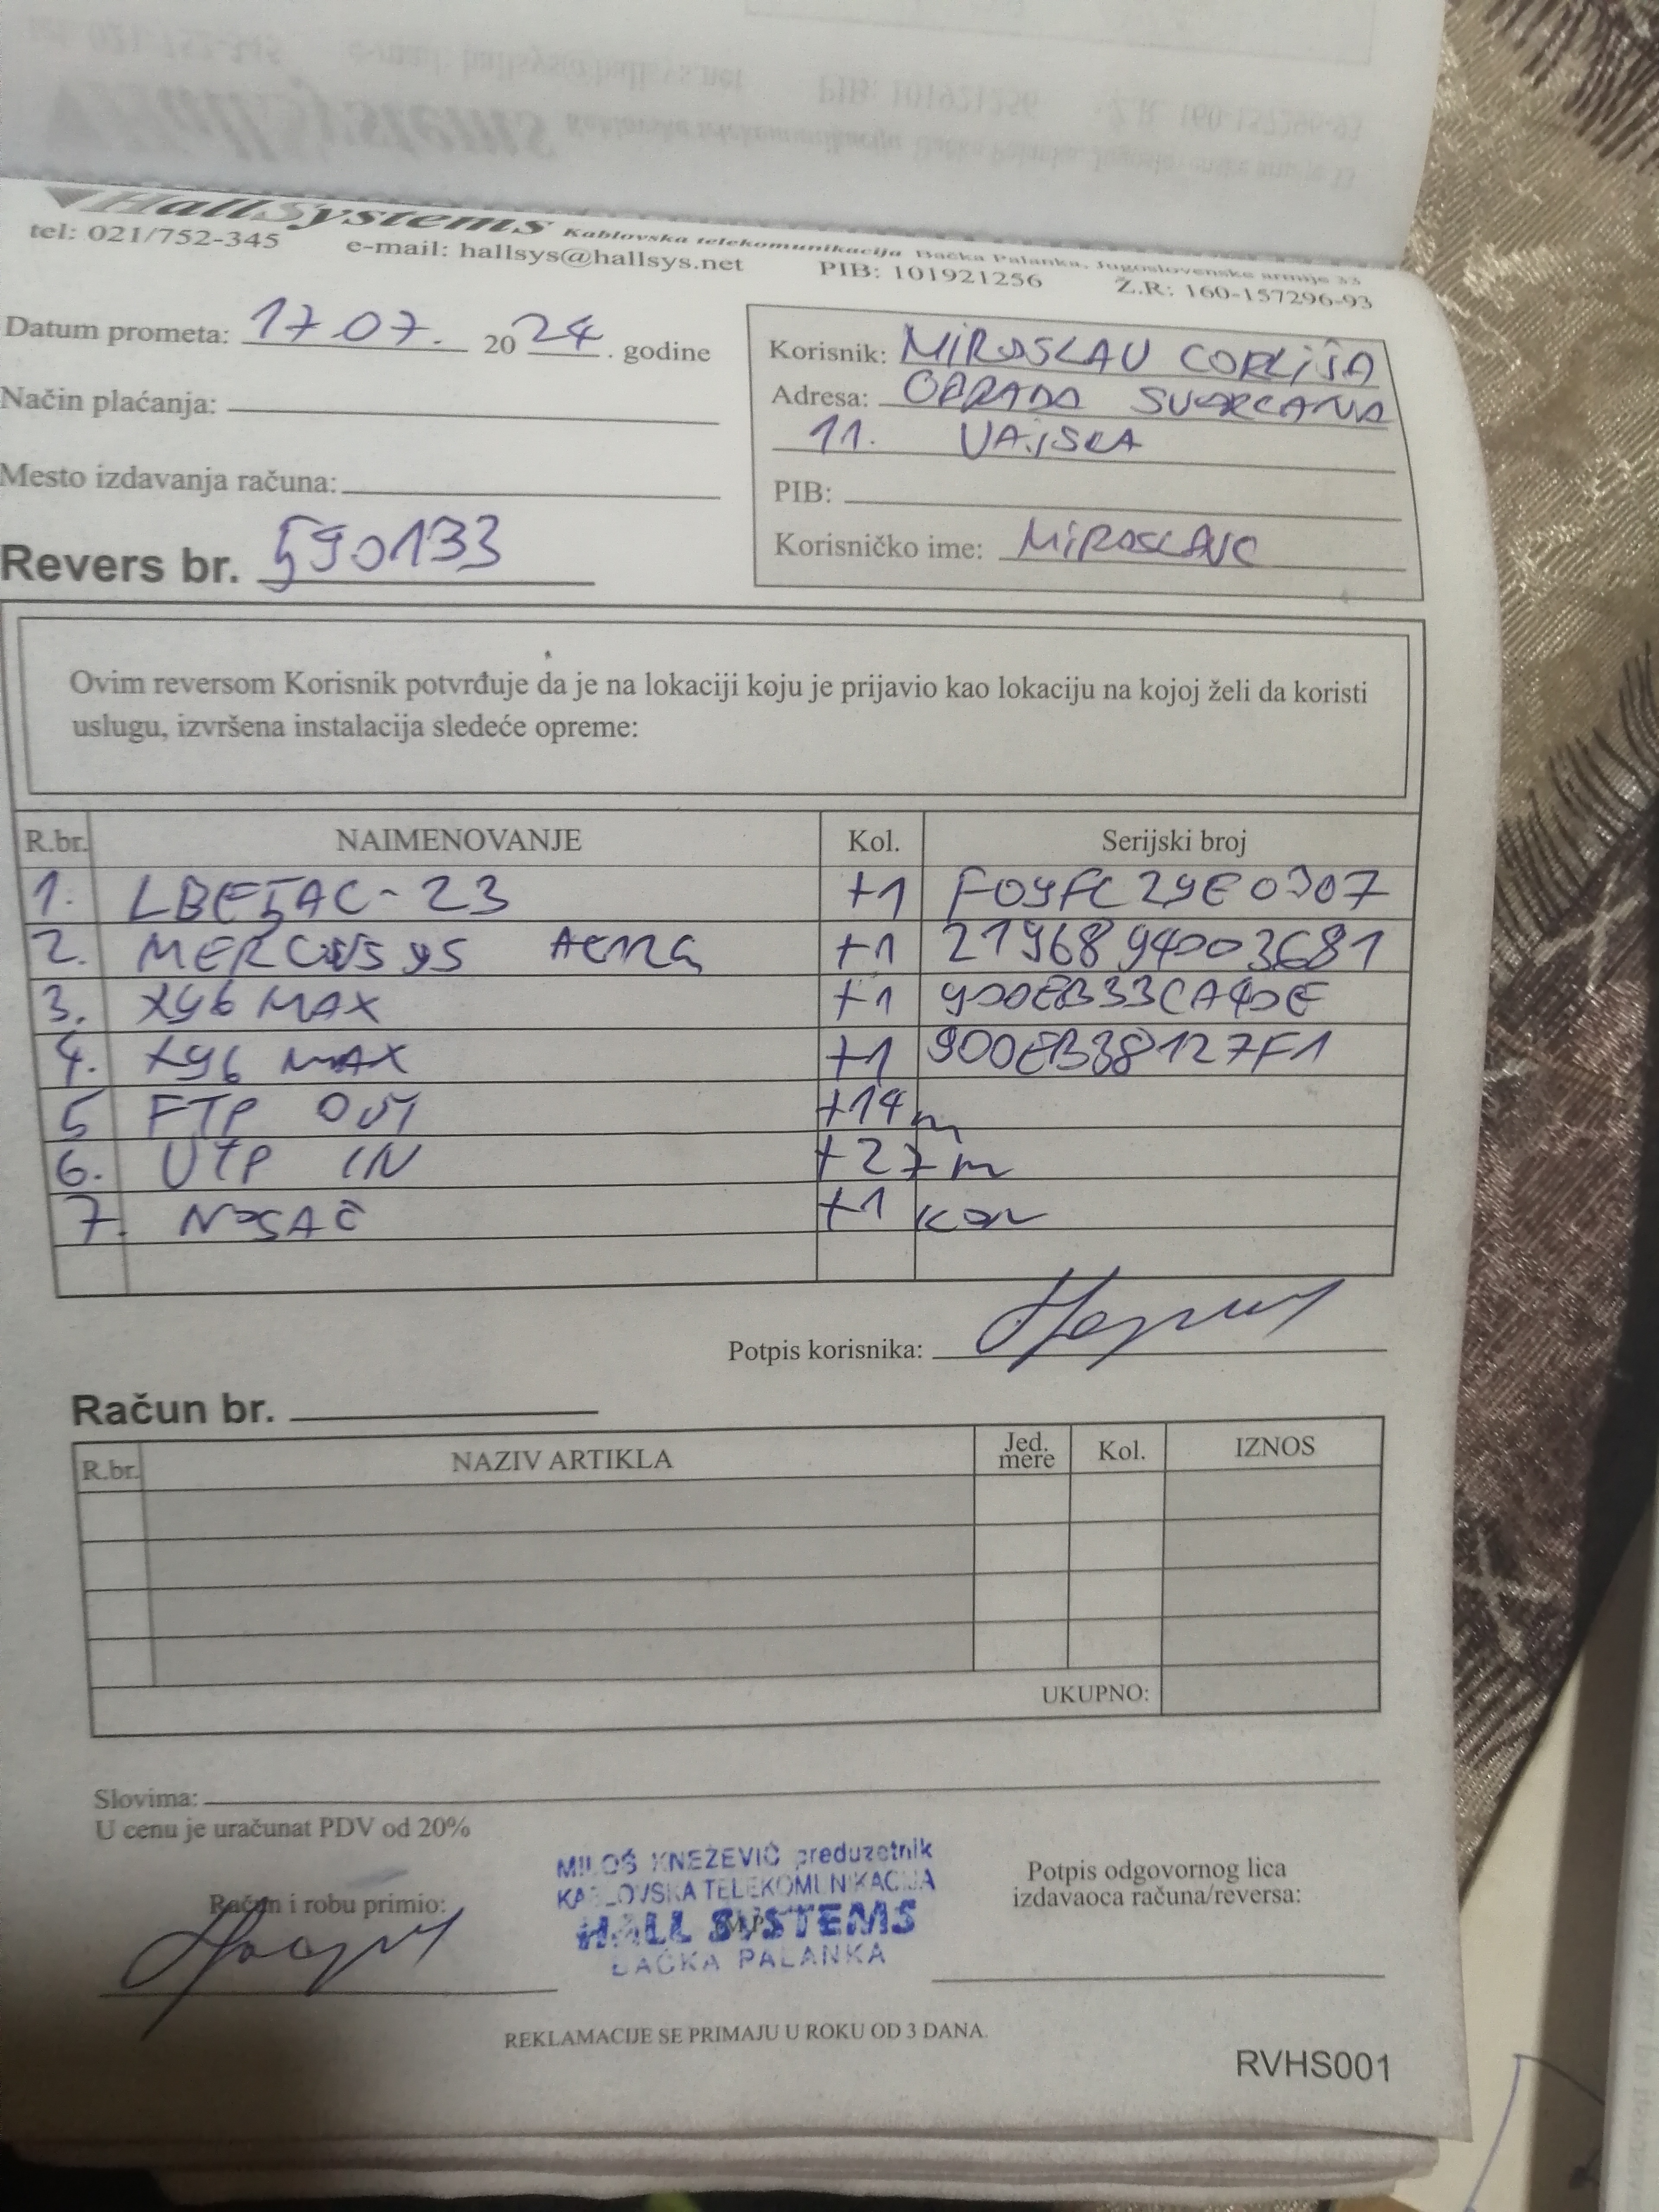 HallSystems Kablovska telekomunikacija Bačka Palanka, Jugoslovenske armije 33
tel: 021/752-345 e-mail: hallsys@hallsys.net PIB: 101921256 Ž.R: 160-157296-93
Datum prometa: 17 07. 2024. godine
Način plaćanja:
Mesto izdavanja računa:
Revers br. 590133
Korisnik: MIROSLAV CORLIJA
Adresa: OBRADA SVARCANA
11. VAJSKA
PIB:
Korisničko ime: MIROSLAVC
Ovim reversom Korisnik potvrđuje da je na lokaciji koju je prijavio kao lokaciju na kojoj želi da koristi
uslugu, izvršena instalacija sledeće opreme:
R.br. NAIMENOVANJE Kol. Serijski broj
1. LBE5AC-23 +1
2. MERCUSYS AC12G +1 2196894003681
3. X96 MAX +1 900EB33CA40E
4. X96 MAX +1 900EB38127F1
5 FTP OUT +14m
6. UTP IN +27m
7. NOSAČ +1 KOM
Potpis korisnika:
Račun br.
R.br. NAZIV ARTIKLA Jed. mere Kol. IZNOS
UKUPNO:
Slovima:
U cenu je uračunat PDV od 20%
Račun i robu primio:
MILOŠ KNEŽEVIĆ preduzetnik
KABLOVSKA TELEKOMUNIKACIJA
HALL SYSTEMS
BAČKA PALANKA
M.P.
Potpis odgovornog lica
izdavaoca računa/reversa:
REKLAMACIJE SE PRIMAJU U ROKU OD 3 DANA.
RVHS001